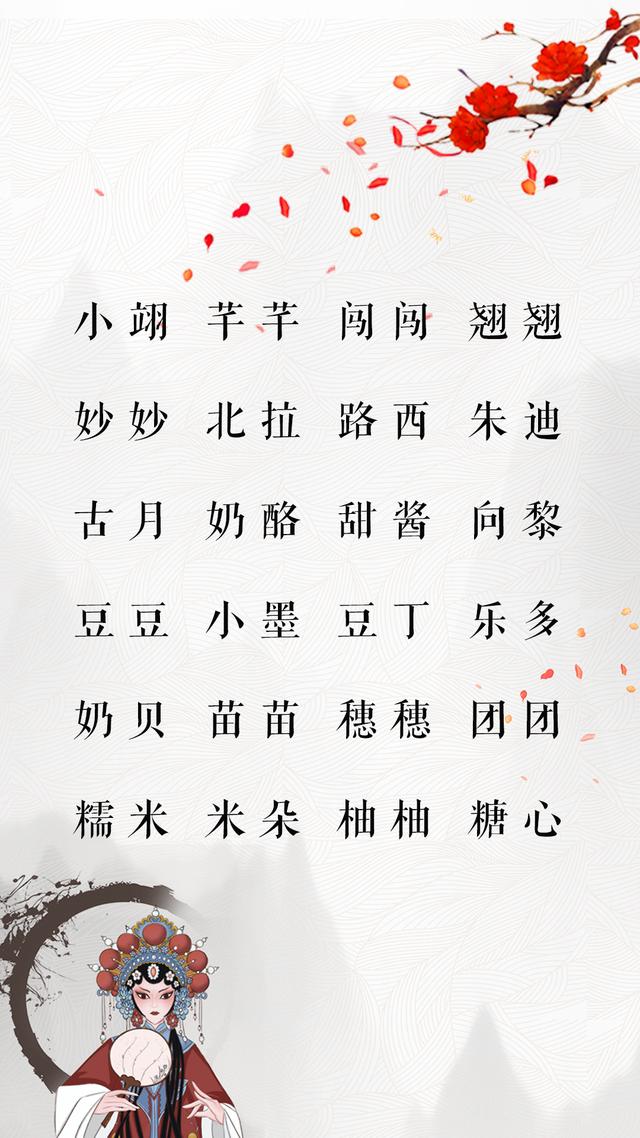 小翊 芊芊 闯闯 翘翘
妙妙 北拉 路西 朱迪
古月 奶酪 甜酱 向黎
豆豆 小墨 豆丁 乐多
奶贝 苗苗 穗穗 团团
糯米 米朵 柚柚 糖心